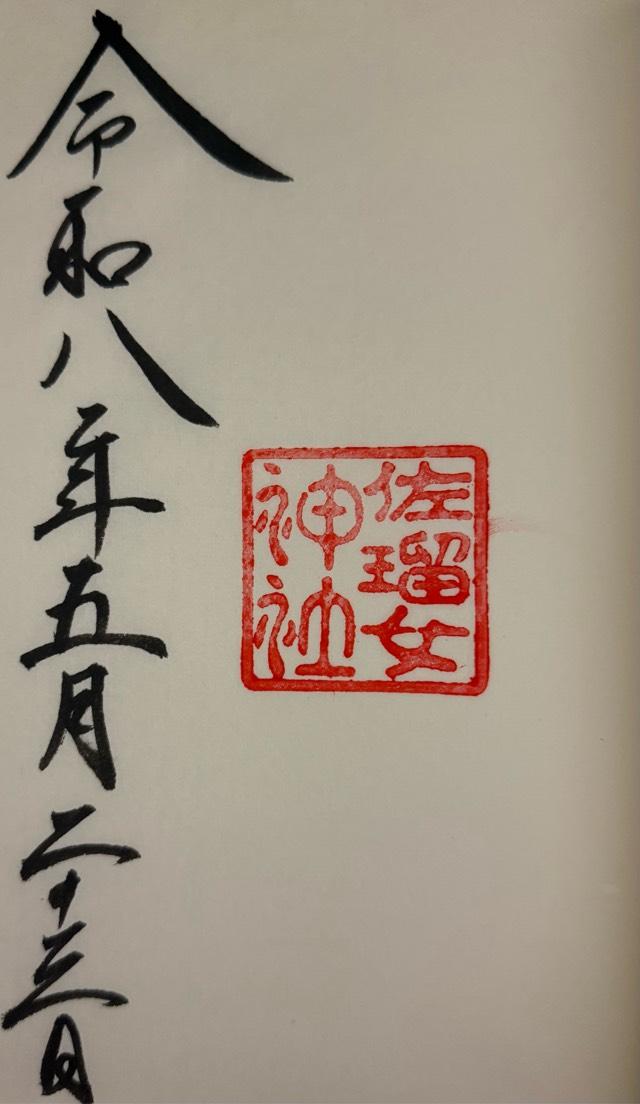 佐瑠女
神社
令和八年五月二十三日